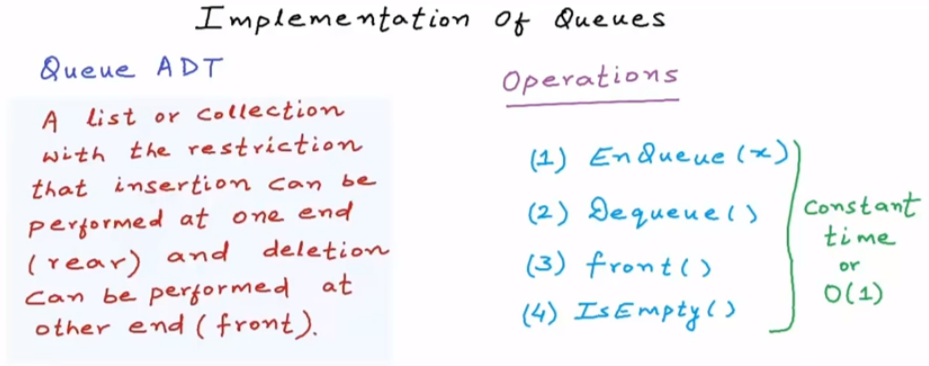 Implementation of Queues
Queue ADT
A list or collection
with the restriction
that insertion can be
performed at one end
(rear) and deletion
can be performed at
other end (front).
Operations
(1) EnQueue(x)
(2) Dequeue()
(3) front()
(4) IsEmpty()
Constant
time
or
O(1)